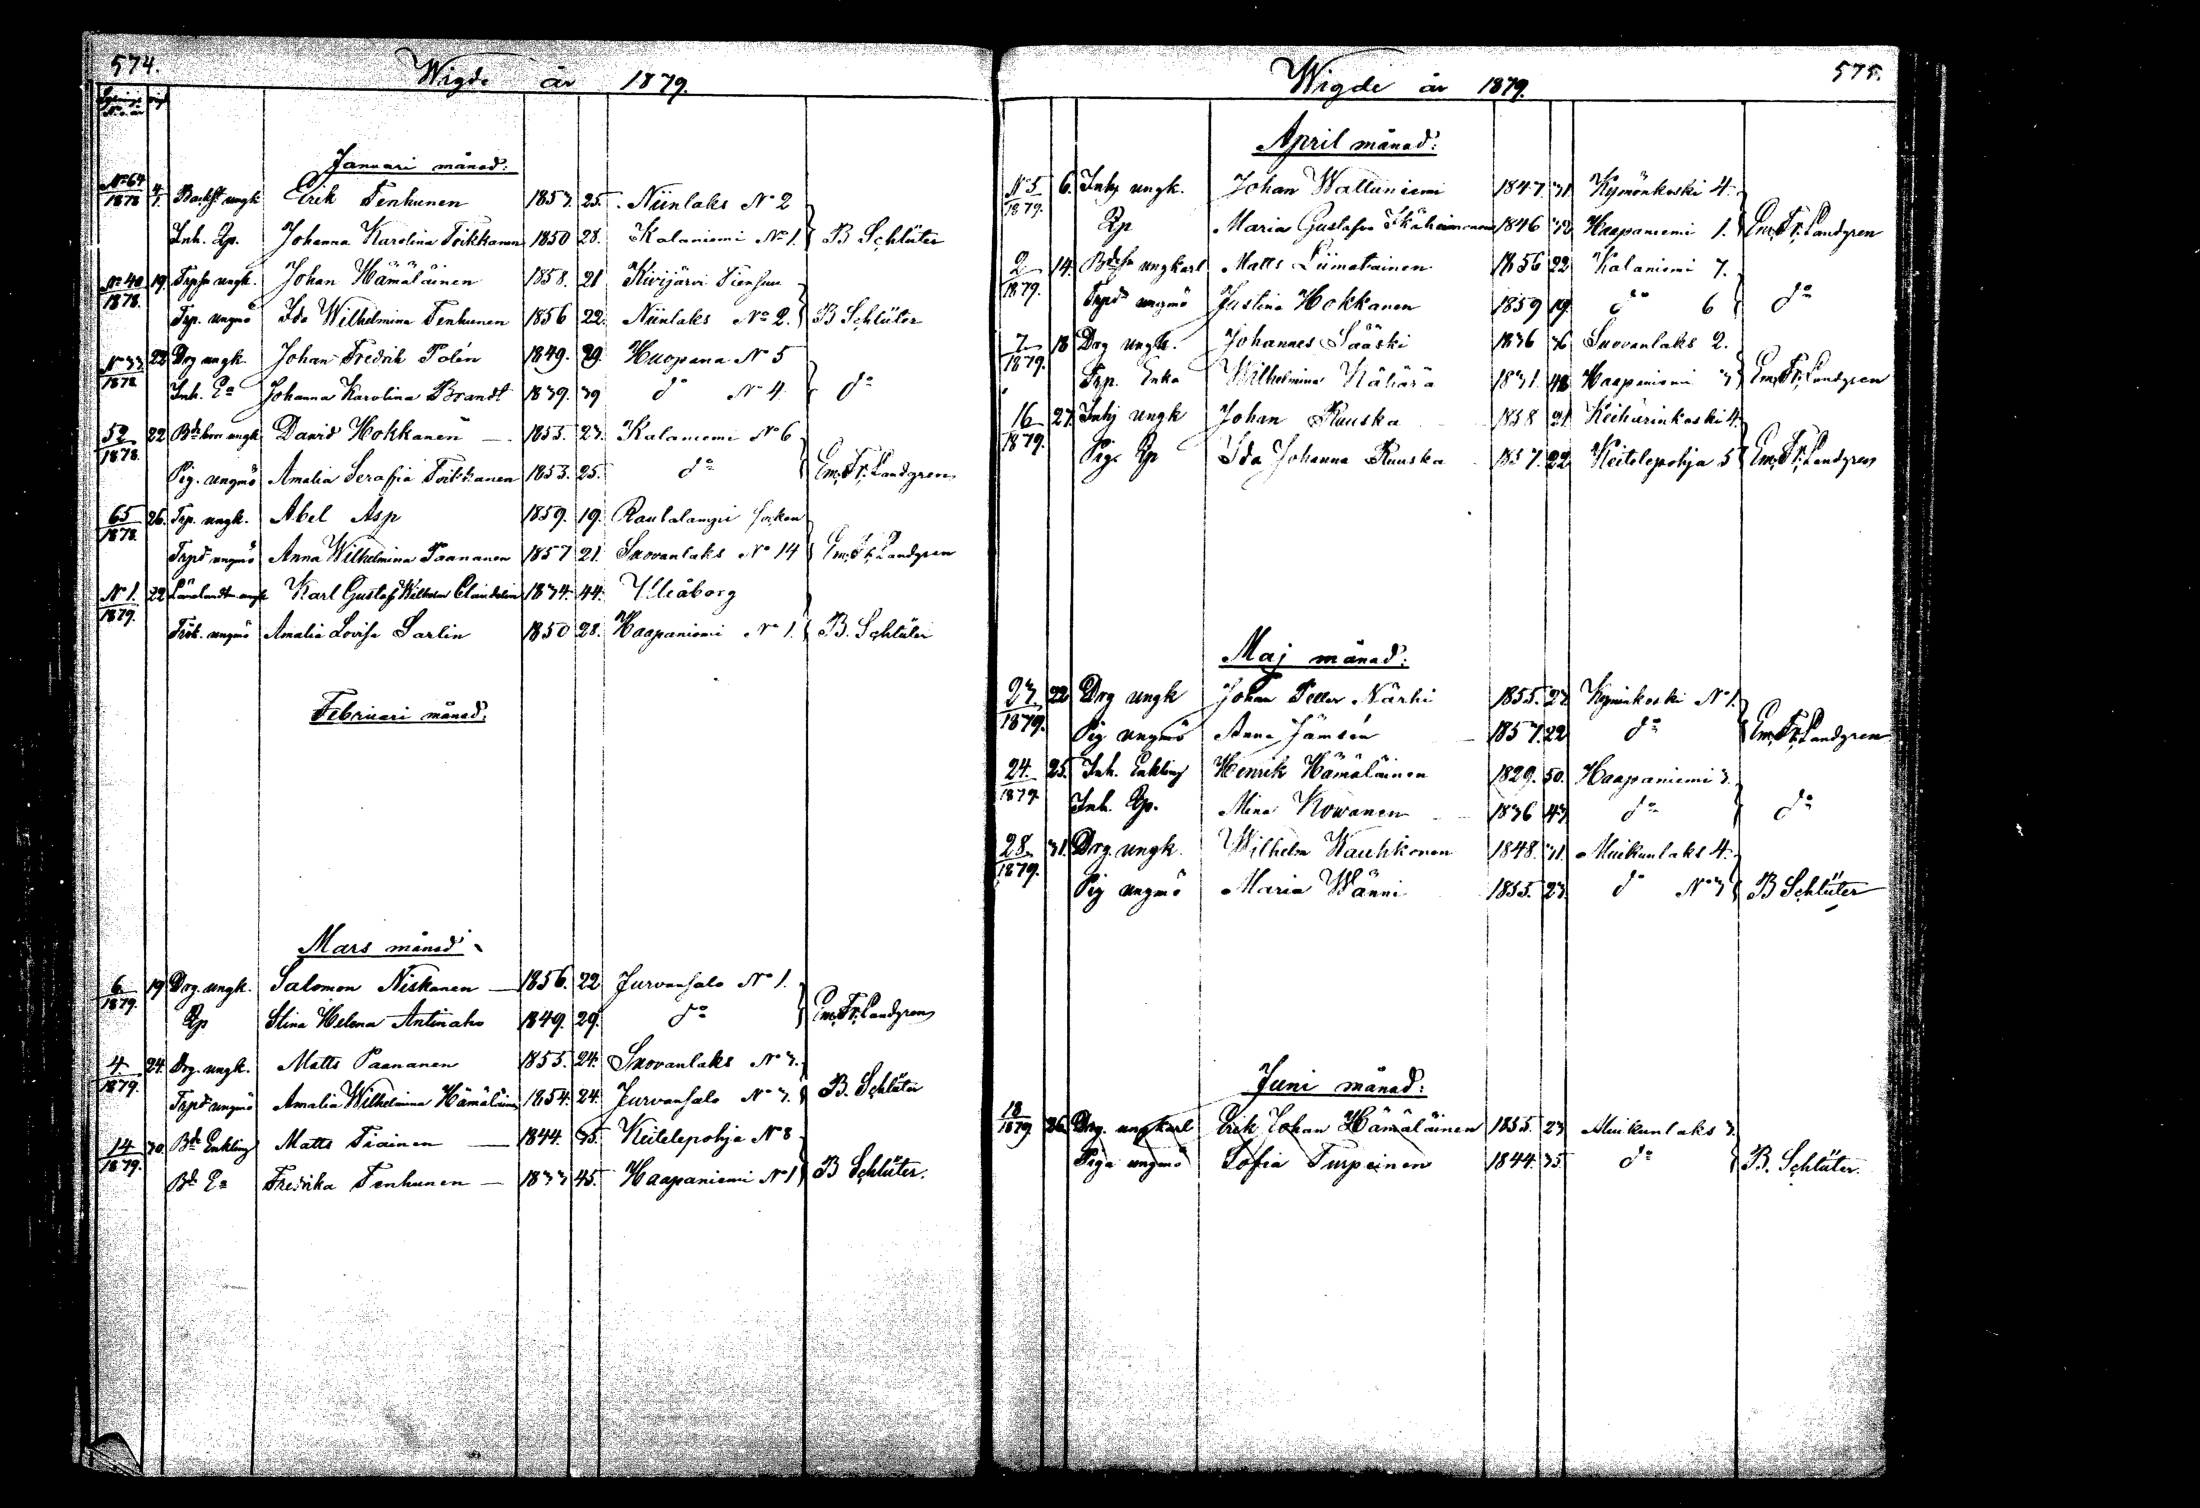 574.
Wigde år 1879.
Januari månad:
No 64/1878 4/1. Backst ungk Erik Tenhunen 1853. 25. Niinlaks No 2
Inh. Qp. Johanna Karolina Toikkanen 1850 28. Kalaniemi No 1. B Schlüter
No 40/1878. 19. Trpsn ungk. Johan Hämäläinen 1858. 21 Kivijärvi
Trp. ungmö Ida Wilhelmina Tenhunen 1856 22. Niinlaks No 2. B Schlüter
No 33/1878 22 Drg ungk. Johan Fredrik Polén 1849. 29. Huopana No 5
Inh. Ea Johanna Karolina Brandt 1839. 39 do No 4. do
52/1878. 22 ungk David Hokkanen 1853. 23. Kalaniemi No 6
Pig. ungmö Amalia Serafia Toikkanen 1853. 25. do Em. Fr. Landgren
65/1878. 26. Trp. ungk. Abel Asp 1859. 19. Rautalampi socken
Trpdr ungmö Anna Wilhelmina Paananen 1857 21. Suovanlaks No 14 Em. Fr. Landgren
No 1./1879. 22 Karl Gustaf Wilhelm 1834. 44. Uleåborg
Frök. ungmö Amalia Lovisa Sarlin 1850 28. Haapaniemi No 1. B. Schlüter
Februari månad:
Mars månad
6./1879. 19 Drg. ungk. Salomon Niskanen 1856. 22 Jurvansalo No 1.
Qp Stina Helena Antinaho 1849. 29. do Em. Fr. Landgren
4./1879. 24. Drg. ungk. Matts Paananen 1855. 24. Suovanlaks No 3.
Trpdr ungmö Amalia Wilhelmina Hämäläinen 1854. 24. Jurvansalo No 3. B. Schlüter
14/1879. 30. Bde Enkling Matts Tiainen 1844. 35. Keitelepohja No 8
Bde Ea Fredrika Tenhunen 1833 45. Haapaniemi No 1 B Schlüter.
575.
Wigde år 1879.
April månad:
No 5/1879. 6. Inhy ungk. Johan Walluniemi 1847. 31. Kymönkoski 4.
Qp Maria Gustafva 1846 32 Haapaniemi 1. Em. Fr. Landgren
2/1879. 14. ungkarl Matts Liimatainen 1856 22 Kalaniemi 7.
Trpdr ungmö Justina Hokkanen 1859 19. do 6 do
7/1879. 18 Drg ungk. Johannes Sääski 1836 36 Suovanlaks 2.
Trp. Enka Wilhelmina Kähärä 1831. 48 Haapaniemi 3 Em. Fr. Landgren
16/1879. 27. Inhy ungk Johan Ruuska 1858 21. Keihärinkoski 4.
Piga Qp Ida Johanna Ruuska 1857. 22 Keitelepohja 5 Em. Fr. Landgren
Maj månad:
23./1879. 22 Drg ungk Johan Petter Närhi 1855. 23 Kyminkoski No 1.
Pig ungmö Anna Jämsén 1857. 22 do Em. Fr. Landgren
24./1879. 25. Inh. Enkling Henrik Hämäläinen 1829. 50. Haapaniemi 3.
Inh. Qp. Mina Kowanen 1836 43 do do
28./1879. 31. Drg. ungk. Wilhelm Kauhkonen 1848. 31. Muikunlaks 4.
Pig ungmö Maria Wänni 1855. 23. do No 3 B Schlüter
Juni månad:
18/1879. 26. Drg. ungkarl Erik Johan Hämäläinen 1855. 23 Muikunlaks 3.
Piga ungmö Sofia Turpeinen 1844. 35 do B. Schlüter.